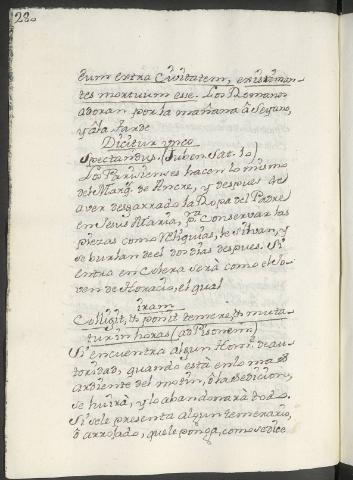 28.
tum extra Civitatem, existiman-
tes mortuum esse. Los Romanos
adoran por la mañana à Seyano,
y à la tarde
Dicitur unco
Spectandus. (Juben. Sat. 10)
Los Parisienses hacen lo mismo
del Marq. de Ancre, y despues de
aver desgarrado la Ropa del Padre
en Jesus Maria, pa. Conservar las
piezas como Reliquias, le silvan, y
se burlan de el dos dias despues. Si
entra en Colera serà como el Jo-
ven de Horacio, el qual
iram
Colligit, & ponit temere, & muta-
tur in horas (ad Pisonem)
Si encuentra algun Home. de au-
toridad, quando està en lo mas
ardiente del motin, ò la sedicion,
se huirà, y lo abandonarà todo.
Si se le presenta algun temerario,
ò arrojado, que le ponga, como se dice